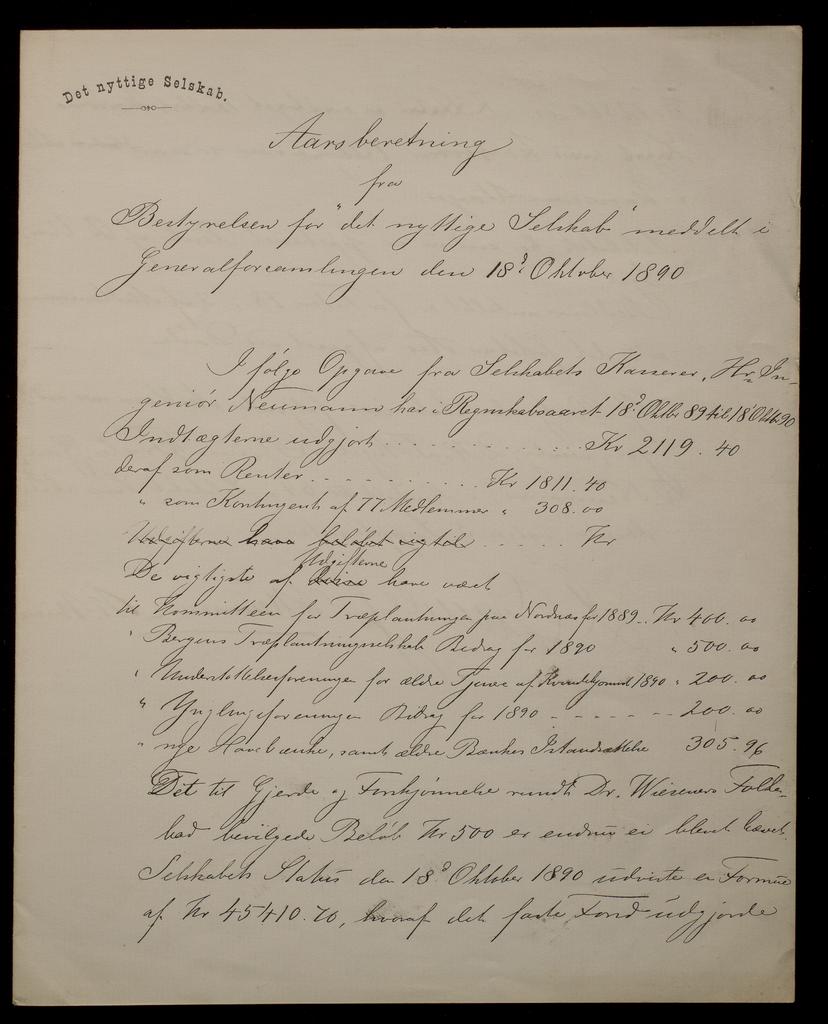 Det nyttige Selskab.
Aarsberetning
fra
Bestyrelsen for "det nyttige Selskab" meddelt i
Generalforsamlingen den 18? Oktober 1890
Ifølge Opgave fra Selskabets Kasserer, Hr. In-
geniør Neumann har i Regnskabsaaret 18? Oktbr 89 til 18 Oktbr 90
Indtægterne udgjort . . . . . . . . . . Kr 2119. 40
deraf som Renter . . . . . . . . . . Kr 1811. 40
" som Kontingent af 77 Medlemmer " 308. 00
Udgifterne have beløbet sig til . . . . . Kr
Udgifterne
De vigtigste af disse have været
til Kommitteen for Træplantningen paa Nordnæs for 1889 . . Kr 400. 00
" Bergens Træplantningsselskab Bidrag for 1890 " 500. 00
" Understøttelsesforeningen for ældre Tjenere af Kvindekjønnet 1890 " 200. 00
" Ynglingeforeningen Bidrag for 1890 - - - - - - - 200. 00
" nye Havebænke, samt ældre Bænkes Istandsættelse 305. 96
Det til Gjerde og Forskjønnelse rundt Dr. Wieseners Folke-
bad bevilgede Beløb Kr 500 er endnu ei blevet hævet.
Selskabets Status den 18? Oktober 1890 udviste en Formue
af Kr 45410.70, hvoraf det faste Fond udgjorde